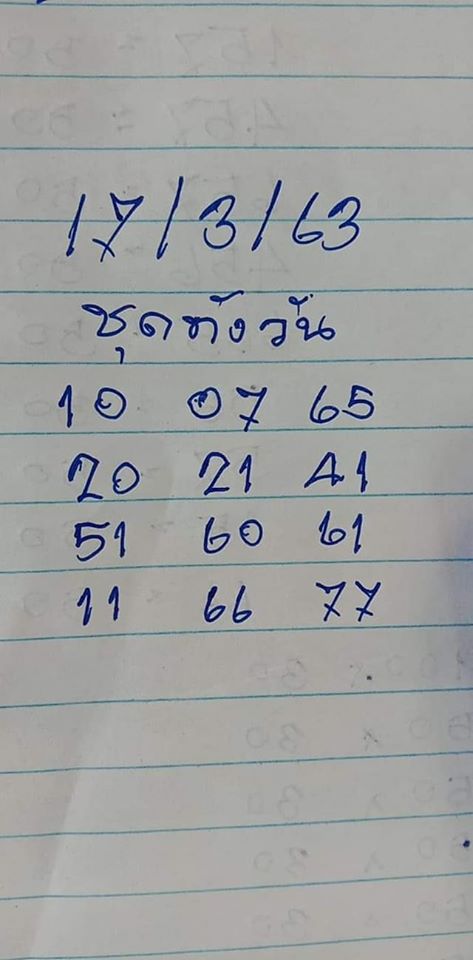 17/3/63
ชุดทั้งวัน
10 07 65
20 21 41
51 60 61
11 66 77